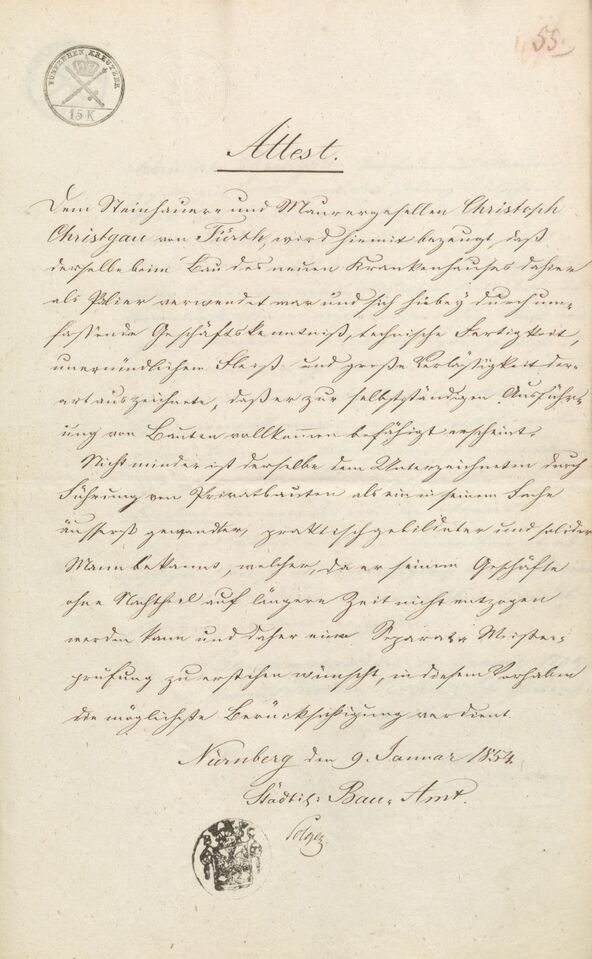 55.
FÜNFZEHEN KREUTZER
15 K
Attest.
Dem Steinhauer- und Maurergesellen Christoph
Christgau von Fürth, wird hiemit bezeugt, daß
derselbe beim Bau des neuen Krankenhauses dahier
als Palier verwendet war und sich hiebey durch um-
fassende Geschäftskenntniß, technische Fertigkeit,
unermüdlichem Fleiß und große Verlässigkeit der-
art auszeichnete, daß er zur selbstständigen Ausführ-
ung von Bauten vollkommen befähigt erscheint.
Nicht minder ist derselbe dem Unterzeichneten durch
Führung von Privatbauten als ein in seinem Fache
äusserst gewandter, praktisch gebildeter und solider
Mann bekannt, welcher, da er seinem Geschäfte
ohne Nachtheil auf längere Zeit nicht entzogen
werden kann und daher eine Separat-Meister-
prüfung zu erstehen wünscht, in diesem Vorhaben
die möglichste Berücksichtigung verdient.
Nürnberg den 9. Januar 1854.
Städtis: Bau-Amt.
Solger